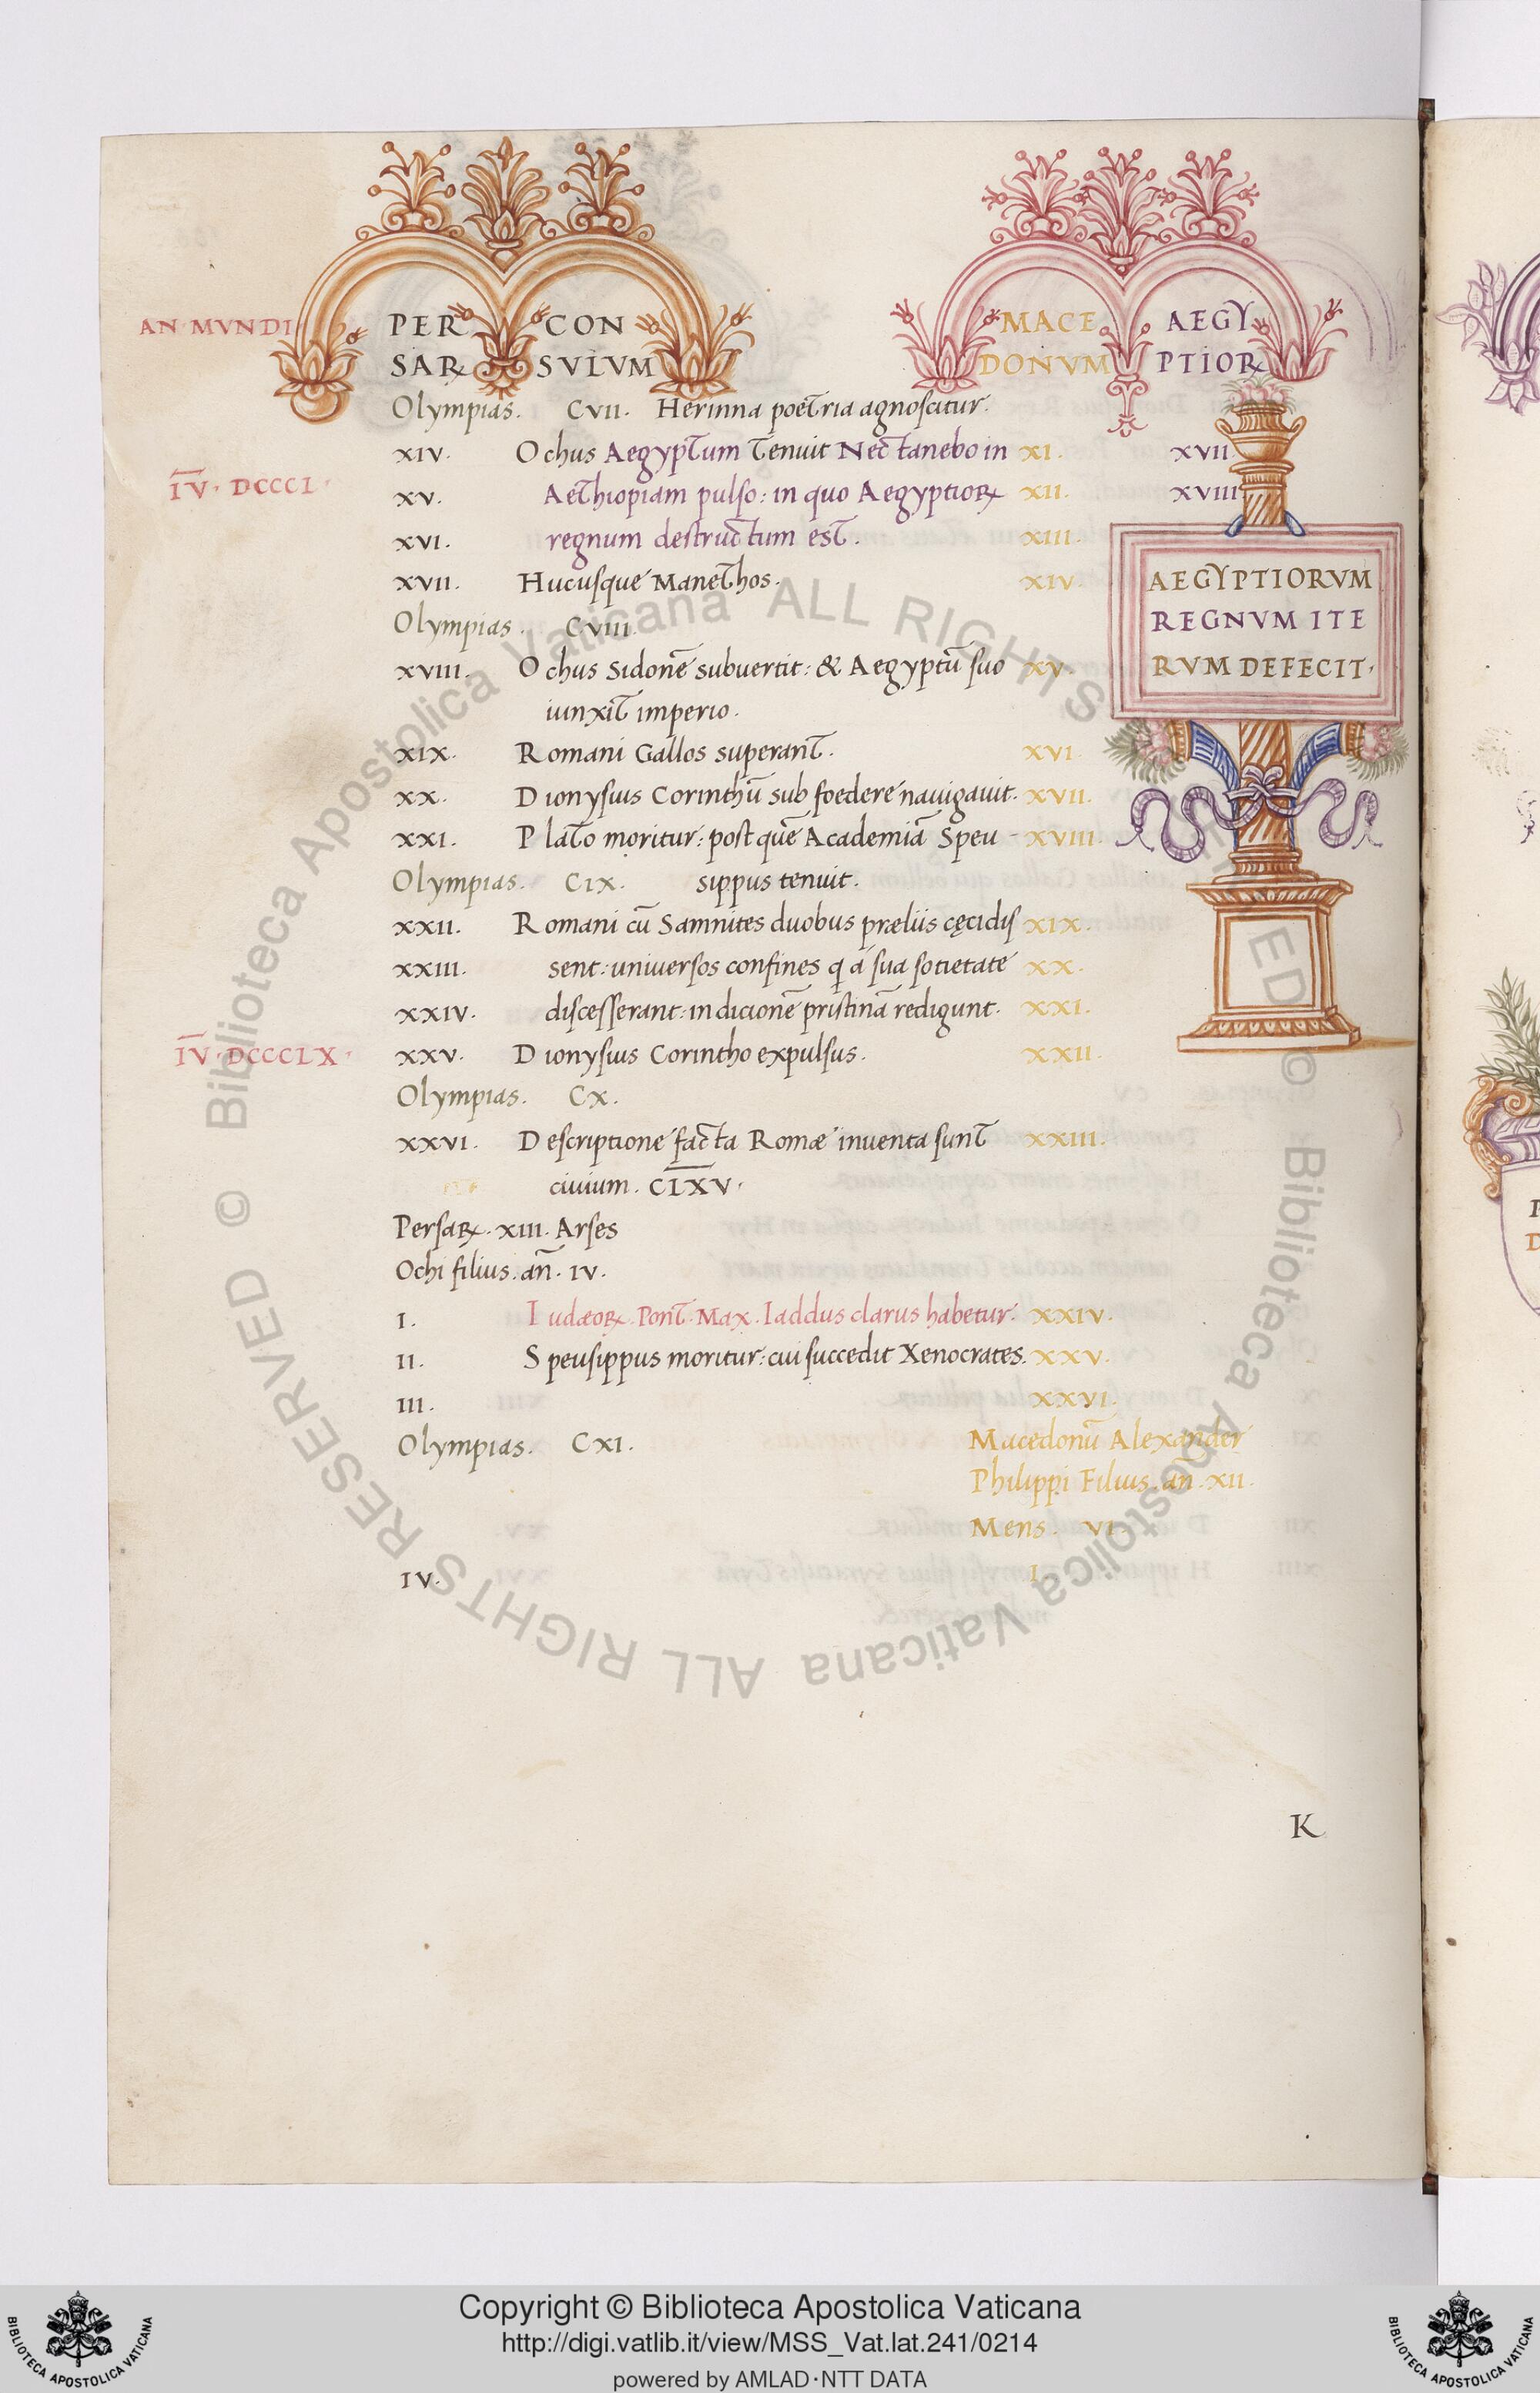 AN MVNDI PER CON MACE AEGY
SAR℞ SVLVM DONVM PTIOR℞
Olympias. CVII. Herinna poetria agnoscitur.
XIV. Ochus Aegyptum tenuit Nectanebo in XI. XVII
IV̅. DCCCL. XV. Aethiopiam pulso: in quo Aegyptio℞ XII. XVIII
XVI. regnum destructum est. XIII.
XVII. Hucusque Manethos. XIV.
AEGYPTIORVM
REGNVM ITE
RVM DEFECIT.
Olympias. CVIII.
XVIII. Ochus Sidonē subuertit: & Aegyptū suo XV.
iunxit imperio.
XIX. Romani Gallos superant. XVI.
XX. Dionysius Corinthū sub foedere nauigauit. XVII.
XXI. Plato moritur: post quē Academiā Speu- XVIII.
Olympias. CIX. sippus tenuit.
XXII. Romani cū Samnites duobus præliis cęcidis XIX.
XXIII. sent: uniuersos confines q̄ a sua societate XX.
XXIV. discesserant: in dicionē pristinā redigunt. XXI.
IV̅. DCCCLX. XXV. Dionysius Corintho expulsus. XXII.
Olympias. CX.
XXVI. Descriptione facta Romæ inuenta sunt XXIII.
ciuium. C̅L̅X̅V.
Persa℞. XIII. Arses
Ochi filius. añ. IV.
I. Iudæo℞. Pont. Max. Iaddus clarus habetur. XXIV.
II. Speusippus moritur: cui succedit Xenocrates. XXV.
III. XXVI.
Olympias. CXI. Macedonū Alexander
Philippi Filius. añ. XII.
Mens. VI.
IV. I.
K
© Biblioteca Apostolica Vaticana ALL RIGHTS RESERVED © Biblioteca Apostolica Vaticana ALL RIGHTS RESERVED
Copyright © Biblioteca Apostolica Vaticana
http://digi.vatlib.it/view/MSS_Vat.lat.241/0214
powered by AMLAD·NTT DATA
BIBLIOTECA APOSTOLICA VATICANA
BIBLIOTECA APOSTOLICA VATICANA